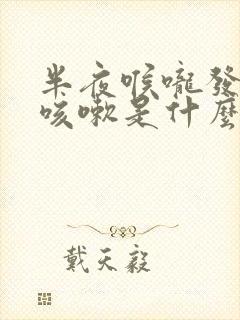 半夜喉嚨發
咳嗽是什麼
戴天毅